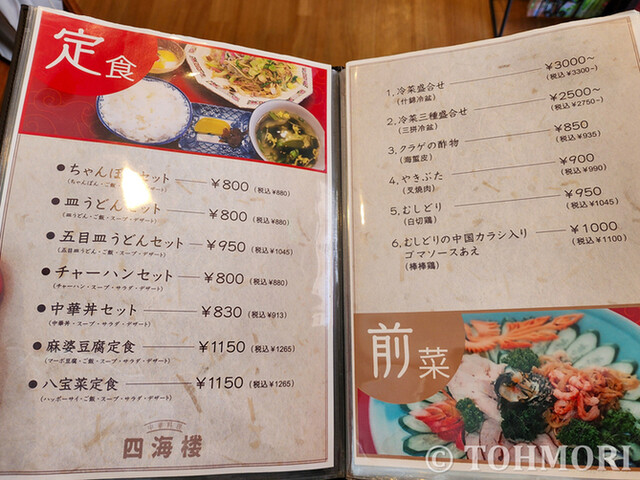 定食
●ちゃんぽんセット ¥800 (税込¥880)
(ちゃんぽん・ご飯・スープ・サラダ・デザート)
●皿うどんセット ¥800 (税込¥880)
(皿うどん・ご飯・スープ・サラダ・デザート)
●五目皿うどんセット ¥950 (税込¥1045)
(五目皿うどん・ご飯・スープ・サラダ・デザート)
●チャーハンセット ¥800 (税込¥880)
(チャーハン・スープ・サラダ・デザート)
●中華丼セット ¥830 (税込¥913)
(中華丼・スープ・サラダ・デザート)
●麻婆豆腐定食 ¥1150 (税込¥1265)
(マーボ豆腐・ご飯・スープ・サラダ・デザート)
●八宝菜定食 ¥1150 (税込¥1265)
(ハッポーサイ・ご飯・スープ・サラダ・デザート)
中華料理
四海楼
1. 冷菜盛合せ ¥3000~
(什錦冷盆) (税込¥3300~)
2. 冷菜三種盛合せ ¥2500~
(三拼冷盆) (税込¥2750~)
3. クラゲの酢物 ¥850
(海蜇皮) (税込¥935)
4. やきぶた ¥900
(叉焼肉) (税込¥990)
5. むしどり ¥950
(白切鶏) (税込¥1045)
6. むしどりの中国カラシ入り ¥1000
ゴマソースあえ (税込¥1100)
(棒棒鶏)
前菜
© TOHMORI